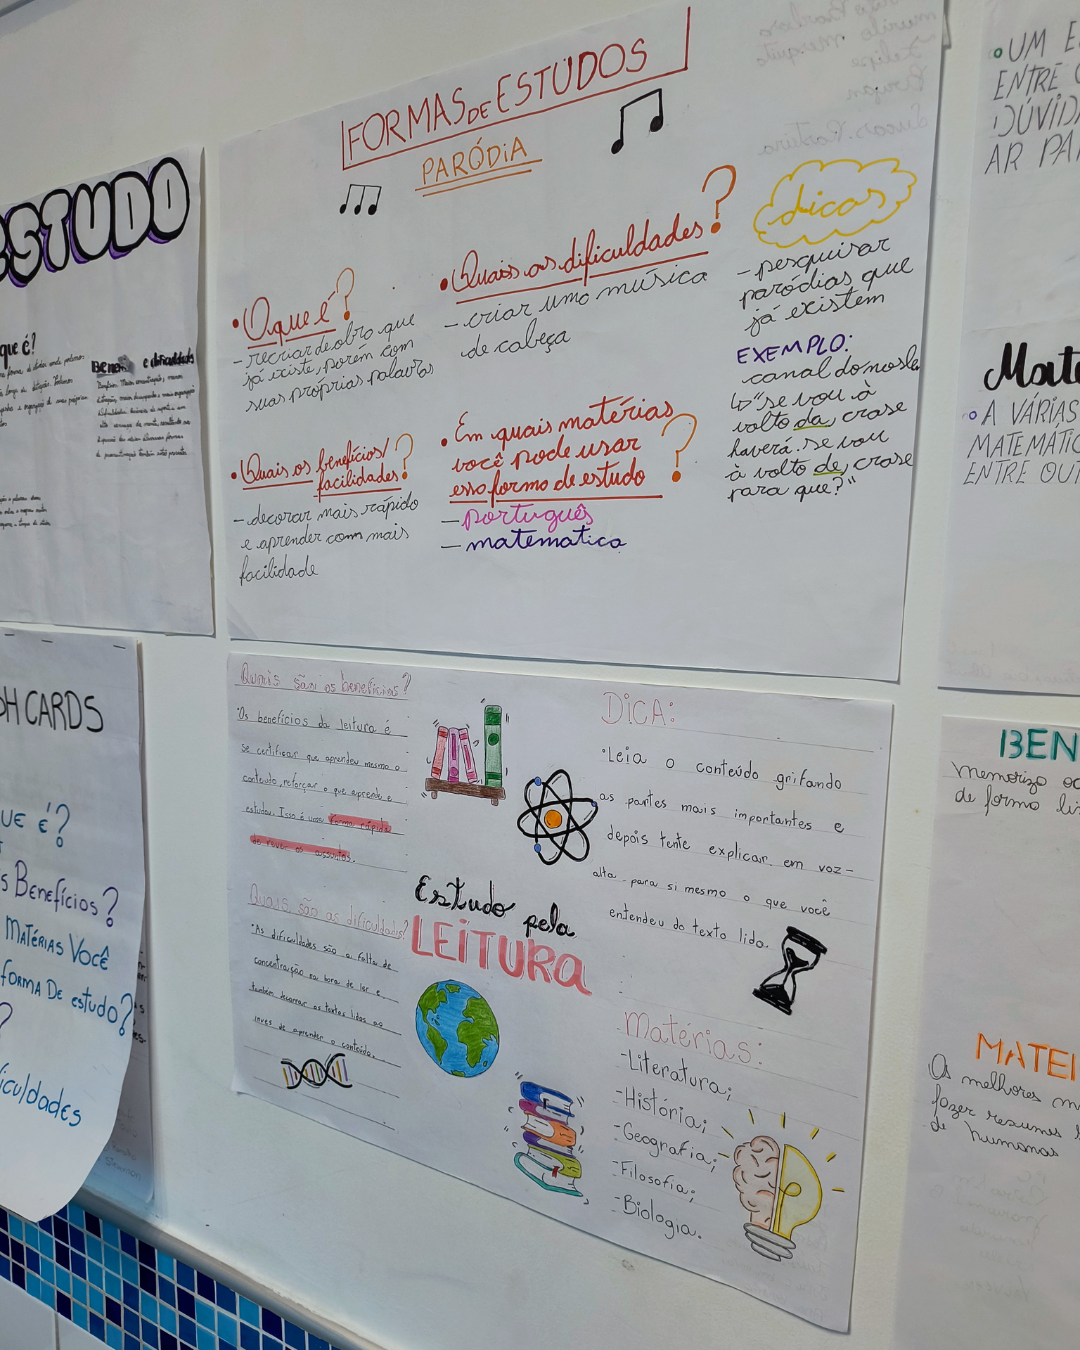 ESTUDO
que é?
e dificuldades
FORMAS DE ESTUDOS
PARÓDIA
• O que é?
- recriar de obra que
já existe, porém com
suas próprias palavras
• Quais as dificuldades?
- criar uma música
de cabeça
• Quais os benefícios/
facilidades?
- decorar mais rápido
e aprender com mais
facilidade
• Em quais matérias
você pode usar
essa forma de estudo?
- português
- matematica
dicas
- pesquisar
paródias que
já existem
EXEMPLO:
canal
↳ "se vou à
volto da, crase
haverá. se vou
à volto de, crase
para que?"
• UM E
ENTRE
DÚVIDA
AR PA
Mate
• A VÁRIAS
MATEMÁTIC
ENTRE OUT
SH CARDS
UE É?
s Benefícios?
MATÉRIAS VOCÊ
FORMA DE estudo?
iculdades
Quais são os benefícios?
•Os benefícios da leitura é
se certificar que aprendeu mesmo o
conteúdo, reforçar o que aprende e
estudou. Isso é uma forma rápida
de rever os assuntos.
Quais são as dificuldades?
•As dificuldades são a falta de
concentração na hora de ler e
também decorar os textos lidos ao
inves de aprender o conteúdo.
Estudo pela
LEITURA
DICA:
•Leia o conteúdo grifando
as partes mais importantes e
depois tente explicar em voz-
alta para si mesmo o que você
entendeu do texto lido.
Matérias:
-Literatura;
-História;
-Geografia;
-Filosofia;
-Biologia.
BEN
memoriza
de forma li
MATEI
As melhores m
fazer resumos
de humanas